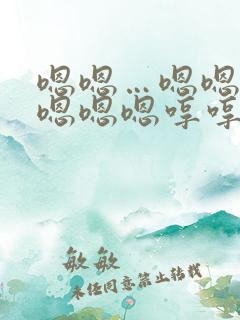 嗯嗯…嗯嗯
嗯嗯嗯哼哼
敏敏
未经同意禁止转载